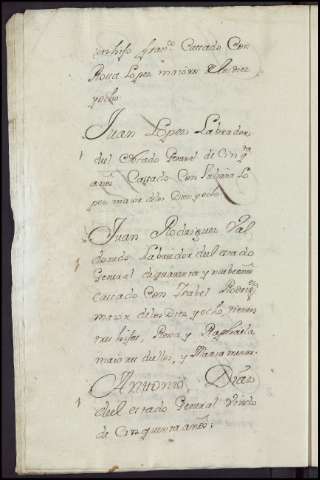 un hijo Fran.co Cassado Con
Rosa Lopez maiores de diez
y ocho
Juan Lopez Labrador
del estado General de Cinq.ta
años Cassado Con Lo
pez maior delos Diez y ocho
Juan Rodriguez Val
Labrador del estado
General de quarenta y nuebe añs
cassado Con Isabel Rodrig.z
maior delos Diez y ocho, tienen
tres hijas, Rosa y Raphaela,
maiores dellos, y Maria menor.
Antonio Diaz
del estado General Viudo
de Cinquenta años.